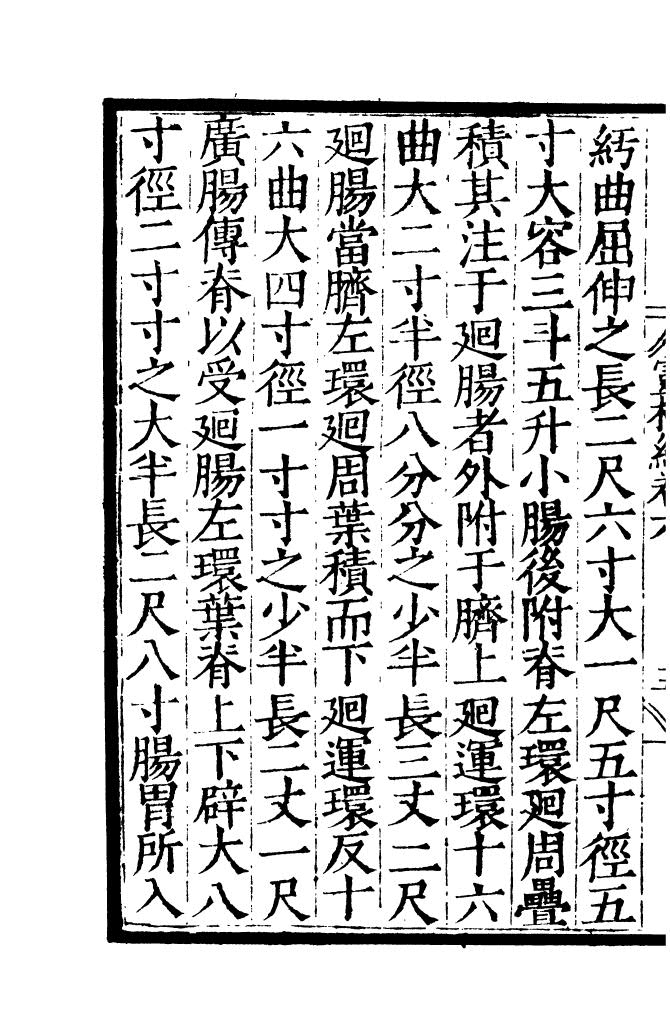 紆曲屈伸之長二尺六寸大一尺五寸徑五
寸大容三斗五升小腸後附脊左環廻周疊
積其注于廻腸者外附于臍上廻運環十六
曲大二寸半徑八分分之少半長三丈二尺
廻腸當臍左環廻周葉積而下廻運環反十
六曲大四寸徑一寸寸之少半長二丈一尺
廣腸傳脊以受廻腸左環葉脊上下辟大八
寸徑二寸寸之大半長二尺八寸腸胃所入